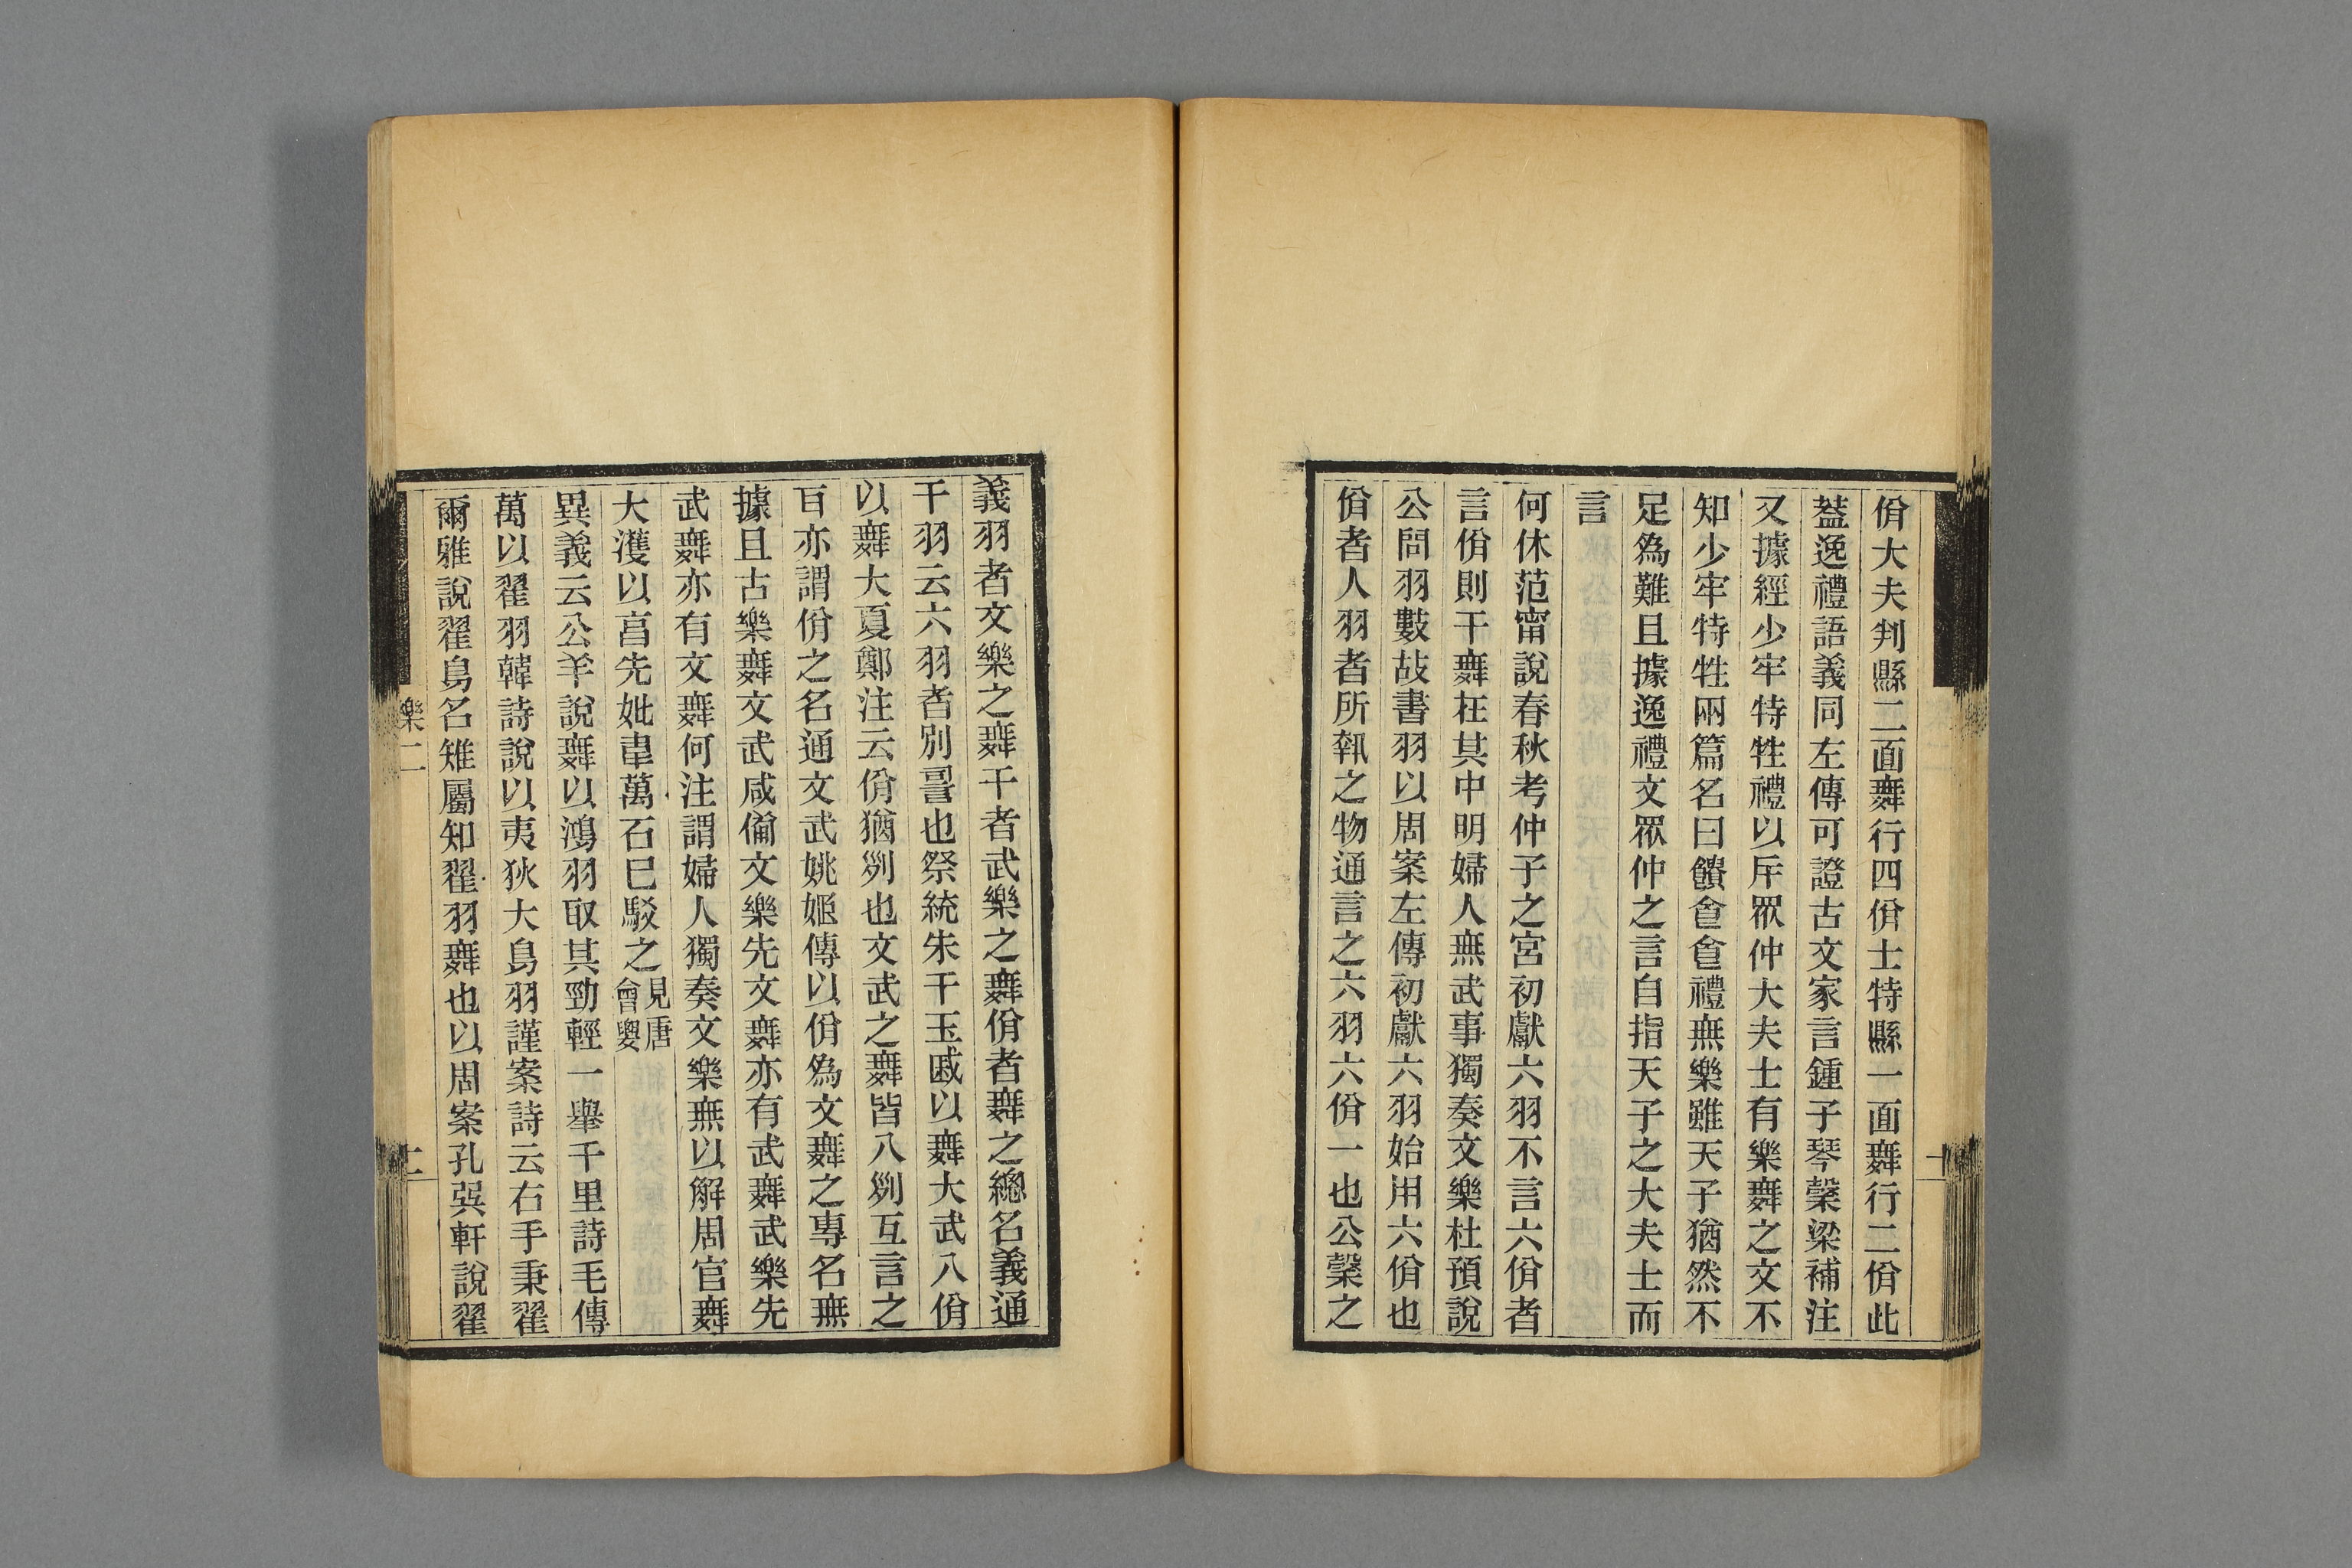 佾大夫判縣二面舞行四佾士特縣一面舞行二佾此
葢逸禮語義同左傳可證古文家言鍾子琴鼜梁補注
又據經少牢特牲禮以斥眾仲大夫士有樂舞之文不
知少牢特牲兩篇名曰饋𠊊𠊊禮無樂雖天子猶然不
足爲難且據逸禮文眾仲之言自指天子之大夫士而
言
何休范甯說春秋考仲子之宮初獻六羽不言六佾者
言佾則干舞在其中明婦人無武事獨奏文樂杜預說
公問羽數故書羽以周案左傳初獻六羽始用六佾也
佾者人羽者所執之物通言之六羽六佾一也公羊之
義羽者文樂之舞干者武樂之舞佾者舞之總名義通
干羽云六羽者別𠷎也祭統朱干玉戚以舞大武八佾
以舞大夏鄭注云佾猶列也文武之舞皆八列互言之
百亦謂佾之名通文武姚姬傳以佾爲文舞之專名無
據且古樂舞文武咸僃文樂先文舞亦有武舞武樂先
武舞亦有文舞何注謂婦人獨奏文樂無以解周官舞
大濩以亯先妣也萬石已駁之見唐會要
異義云公羊說舞以鴻羽取其勁輕一舉千里詩毛傳
萬以翟羽韓詩說以夷狄大鳥羽謹案詩云右手秉翟
爾雅說翟鳥名雉屬知翟羽舞也以周案孔㢲軒說翟
樂二
二